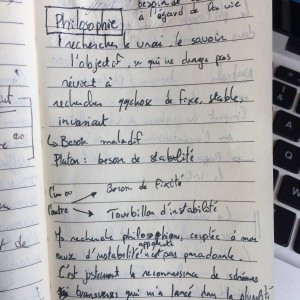 besoin de
à l'égard de la vie
Philosophie
rechercher le vrai, le savoir
l'objectif, ce qui ne change pas
rechercher qqchose de fixe, stable,
invariant
↳ Besoin maladif
Platon : besoin de stabilité
L'un → Besoin de fixité
l'autre → Tourbillon d'instabilité
Ma recherche philosophique, couplée à mes
apparente
d'instabilité n'est pas paradoxale
C'est justement la reconnaissance de schémas
transverses qui m'a lancé dans la pluralité